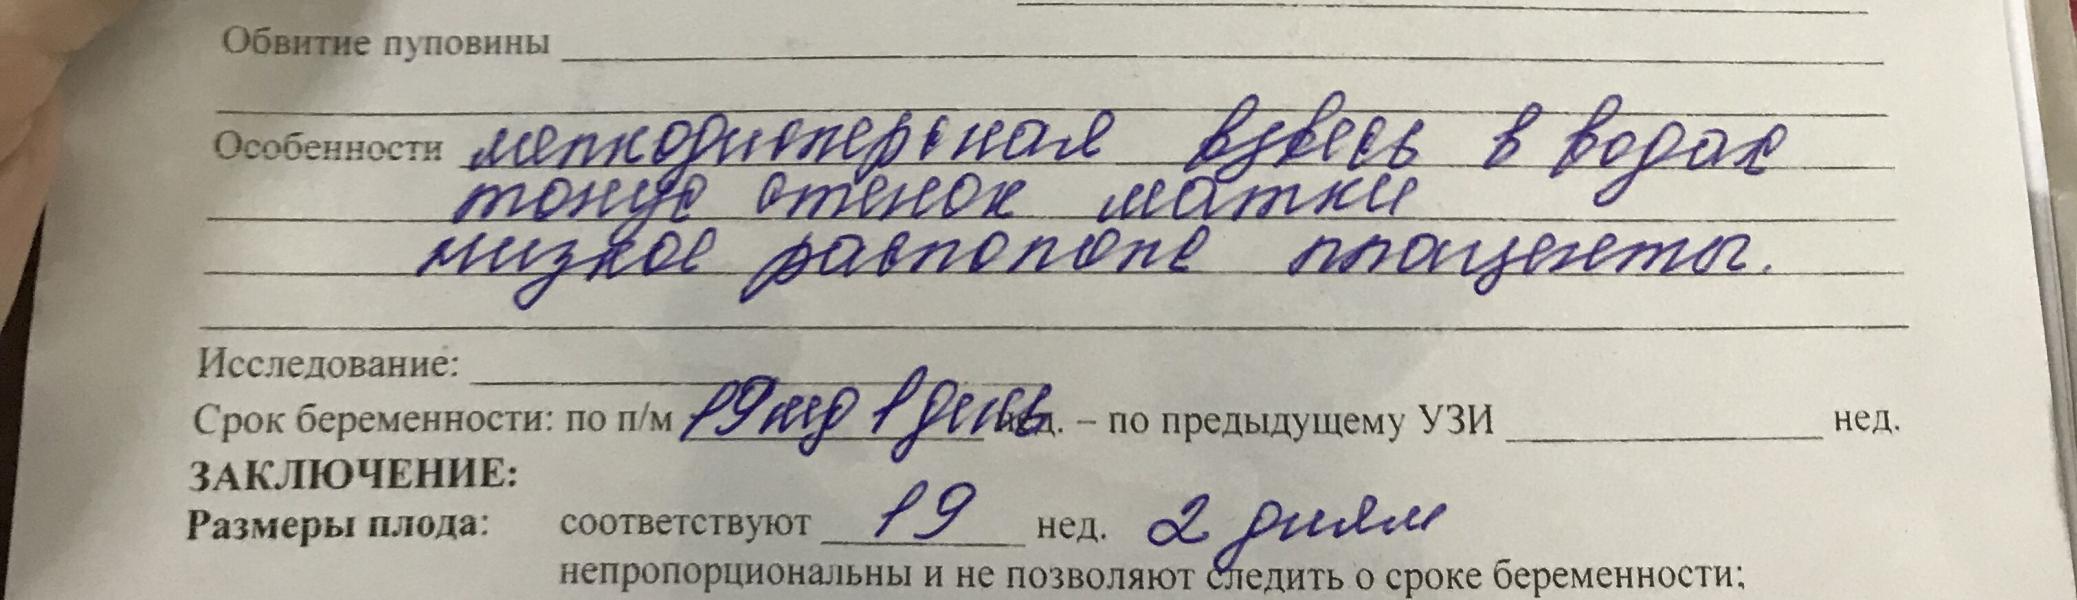 Обвитие пуповины
Особенности мелкодисперсная взвесь в водах
тонус стенок матки
низкое располож плаценты.
Исследование:
Срок беременности: по п/м 19нед 1 день нед. – по предыдущему УЗИ нед.
ЗАКЛЮЧЕНИЕ:
Размеры плода: соответствуют 19 нед. 2 дням
непропорциональны и не позволяют следить о сроке беременности;